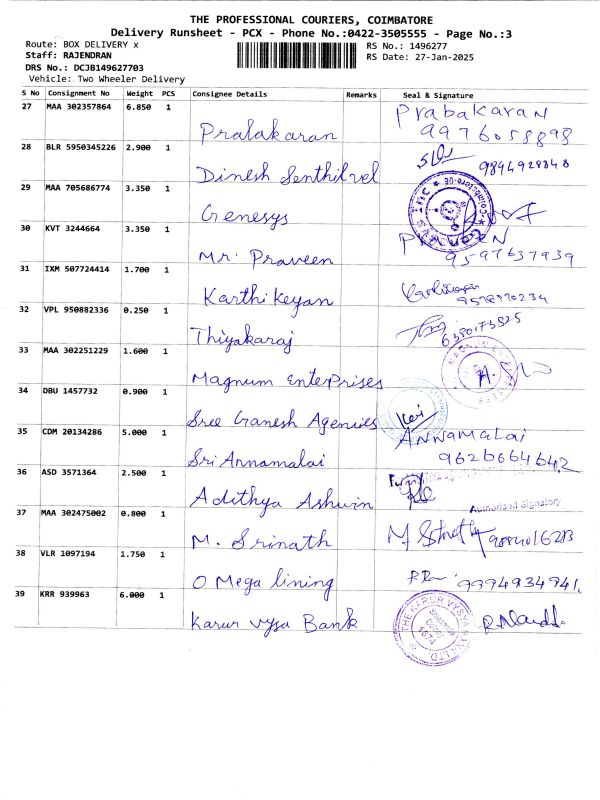 THE PROFESSIONAL COURIERS, COIMBATORE
Delivery Runsheet - PCX - Phone No.:0422-3505555 - Page No.:3
Route: BOX DELIVERY x
RS No.: 1496277
Staff: RAJENDRAN
RS Date: 27-Jan-2025
DRS No.: DCJB149627703
Vehicle: Two Wheeler Delivery
S No Consignment No Weight PCS Consignee Details Remarks Seal & Signature
27 MAA 302357864 6.850 1 Prabakaran
Pralakaran 9976058898
28 BLR 5950345226 2.900 1
Dinesh Senthilvel 9894928848
29 MAA 705686774 3.350 1
Genesys
30 KVT 3244664 3.350 1 PRAVEEN
Mr. Praveen 9597637939
31 IXM 507724414 1.700 1
Karthikeyan
32 VPL 950882336 0.250 1
Thiyakaraj 6380173525
33 MAA 302251229 1.600 1
Magnum Enterprises
34 DBU 1457732 0.900 1
Sree Ganesh Agencies
35 CDM 20134286 5.000 1 Annamalai
Sri Annamalai 9626664642
36 ASD 3571364 2.500 1
Adithya Ashwin Authorised Signatory
37 MAA 302475002 0.800 1
M. Srinath
38 VLR 1097194 1.750 1
O Mega lining 9994934941.
39 KRR 939963 6.000 1
Karur Vysa Bank THE KARUR VYSYA BANK LTD